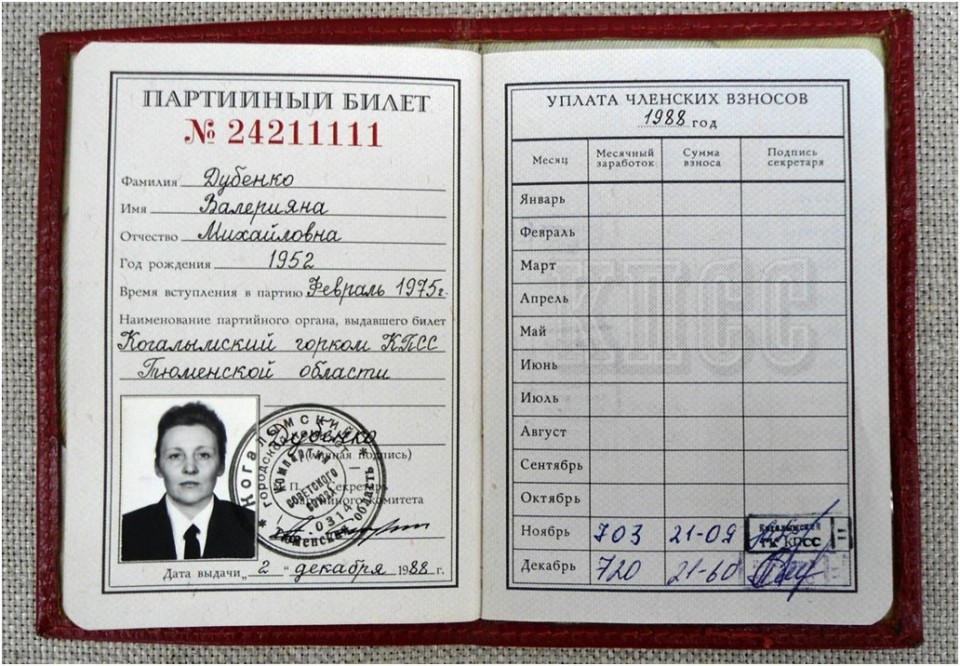 ПАРТИЙНЫЙ БИЛЕТ
№ 24211111
Фамилия Дубенко
Имя Валерияна
Отчество Михайловна
Год рождения 1952
Время вступления в партию Февраль 1975г.
Наименование партийного органа, выдавшего билет
Когалымский горком КПСС
Тюменской области
Дубенко
(личная подпись)
М.П. Секретарь
партийного комитета
Когалымский
городской
Компартия
Советского
Союза
0314
Тюменская область
Дата выдачи „2“ декабря 1988 г.
УПЛАТА ЧЛЕНСКИХ ВЗНОСОВ
1988 год
Месяц Месячный заработок Сумма взноса Подпись секретаря
Январь
Февраль
Март
КПСС
Апрель
Май
Июнь
Июль
Август
Сентябрь
Октябрь
Ноябрь 703 21-09
Когалымский
ГК КПСС
Декабрь 720 21-60